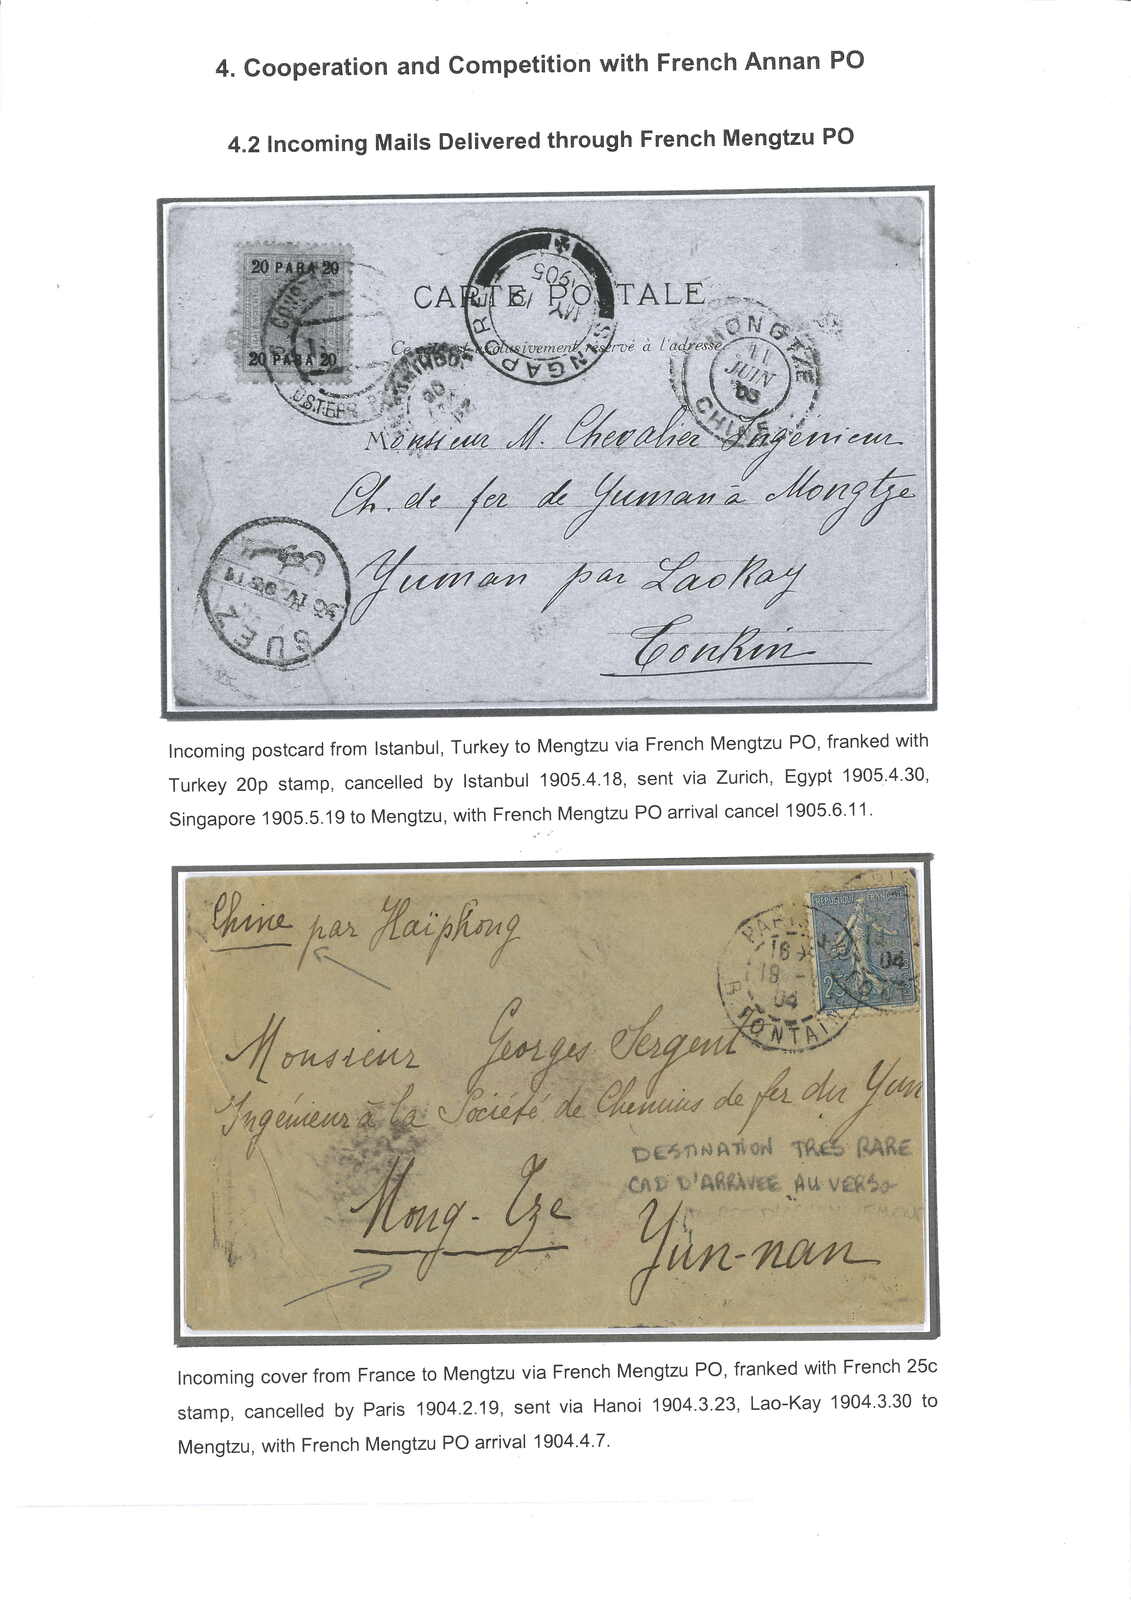 4. Cooperation and Competition with French Annan PO
4.2 Incoming Mails Delivered through French Mengtzu PO
20 PARA 20
20 PARA 20
SINGAPORE
MY 19
1905
CARTE POSTALE
Ce côté est exclusivement réservé à l'adresse
MONGTZE
11
JUIN
05
CHINE
Monsieur M. Chevalier Ingénieur
Ch. de fer de Yuman à Mongtze
Yuman par Laokay
Tonkin
SUEZ
Incoming postcard from Istanbul, Turkey to Mengtzu via French Mengtzu PO, franked with
Turkey 20p stamp, cancelled by Istanbul 1905.4.18, sent via Zurich, Egypt 1905.4.30,
Singapore 1905.5.19 to Mengtzu, with French Mengtzu PO arrival cancel 1905.6.11.
Chine par Haïphong
REPUBLIQUE FRANÇAISE
25
PARIS
04
Monsieur Georges Sergent
Ingénieur à la Société de Chemins de fer du Yun
DESTINATION TRES RARE
CAD D'ARRIVEE AU VERSO
Mong-Tze
Yun-nan
Incoming cover from France to Mengtzu via French Mengtzu PO, franked with French 25c
stamp, cancelled by Paris 1904.2.19, sent via Hanoi 1904.3.23, Lao-Kay 1904.3.30 to
Mengtzu, with French Mengtzu PO arrival 1904.4.7.